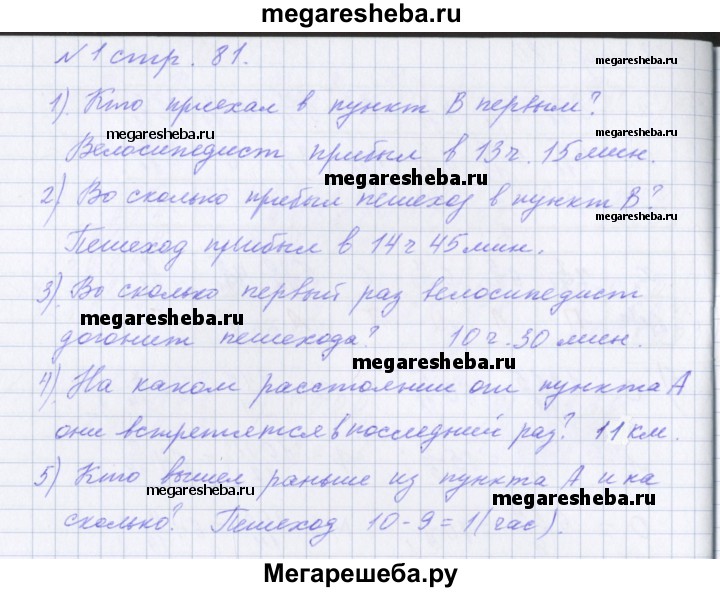 megaresheba.ru
№1 стр. 81.
megaresheba.ru
1). Кто приехал в пункт В первым?
megaresheba.ru
megaresheba.ru
Велосипедист прибыл в 13 ч. 15 мин.
megaresheba.ru
2) Во сколько прибыл пешеход в пункт В?
megaresheba.ru
Пешеход прибыл в 14 ч 45 мин.
3). Во сколько первый раз велосипедист
megaresheba.ru
догонит пешехода? 10 ч. 30 мин.
megaresheba.ru
megaresheba.ru
4). На каком расстоянии от пункта А
они встретятся в последний раз? 11 км.
5) Кто вышел раньше из пункта А и на
megaresheba.ru
megaresheba.ru
сколько? Пешеход 10 - 9 = 1 (час).
Мегарешеба.ру